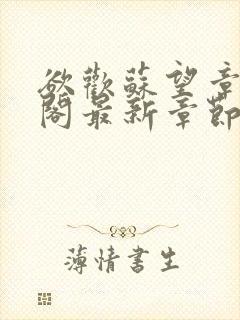 欲歡蘇望章
閣最新章節
薄情書生